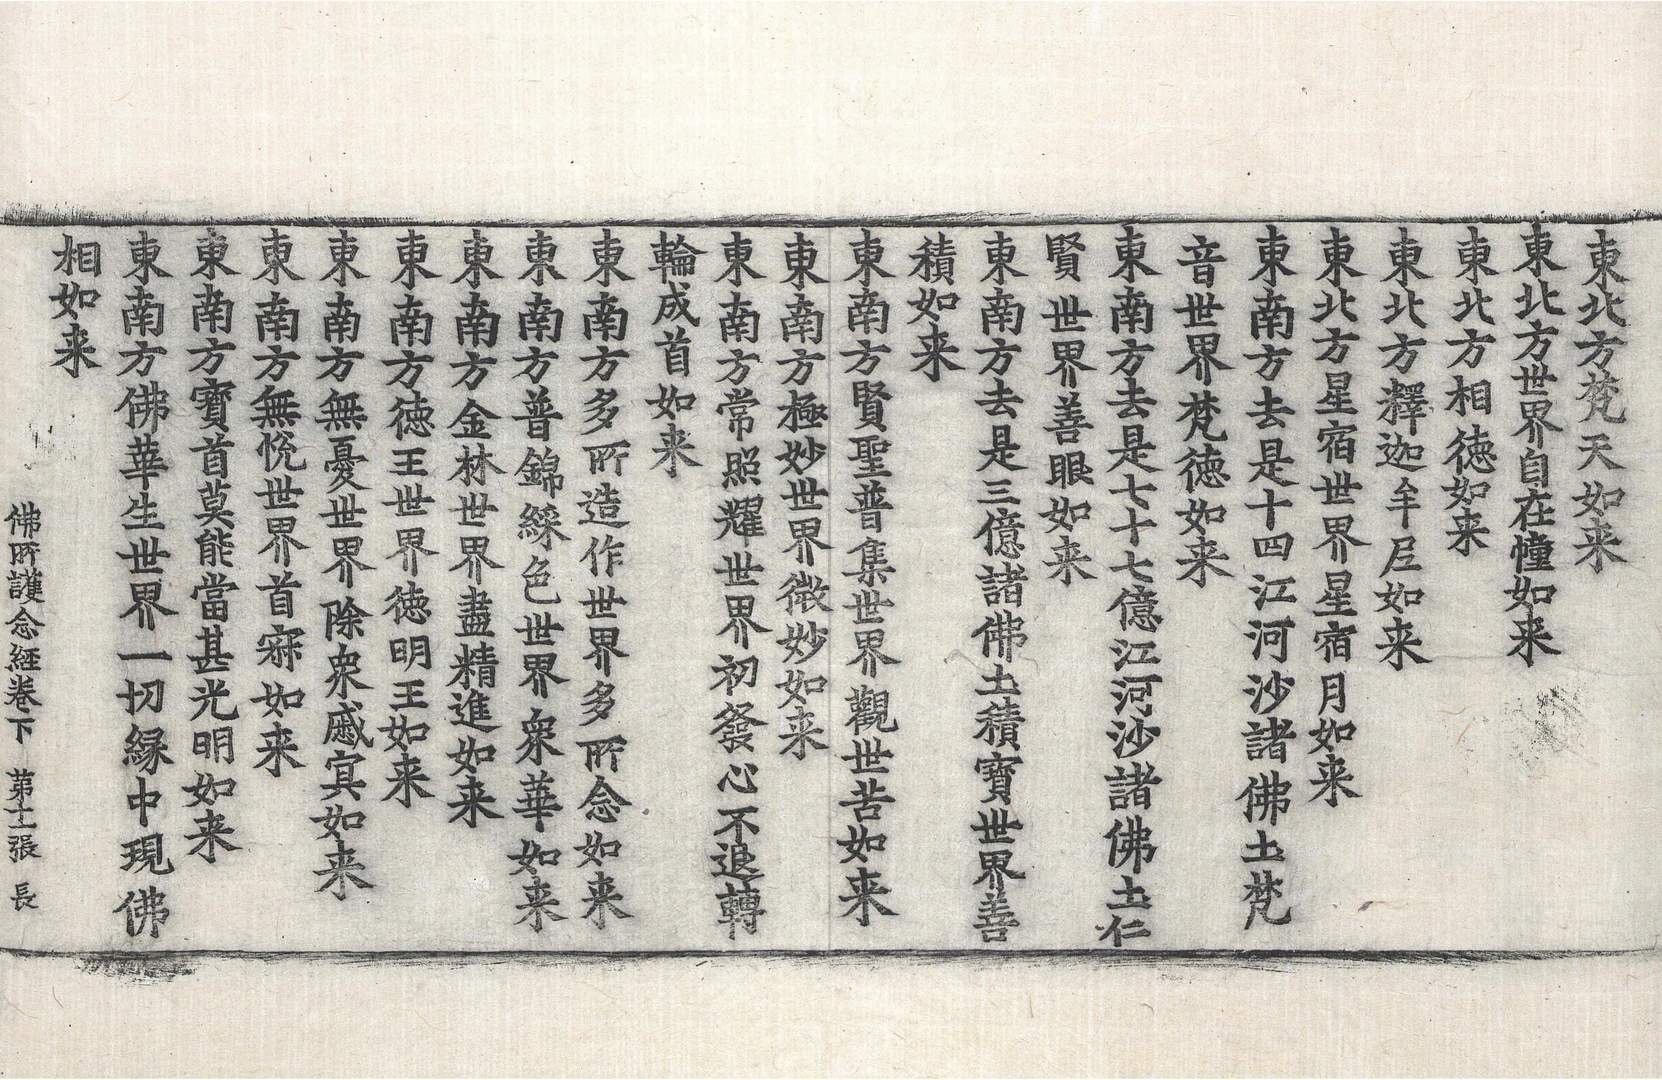 東北方梵天如来
東北方世界自在幢如来
東北方相徳如来
東北方釋迦牟尼如来
東北方星宿世界星宿月如来
東南方去是十四江河沙諸佛土梵
音世界梵徳如来
東南方去是七十七億江河沙諸佛土仁
賢世界善眼如来
東南方去是三億諸佛土積寶世界善
積如来
東南方賢聖普集世界觀世苦如来
東南方極妙世界微妙如来
東南方常照耀世界初發心不退轉
輪成首如来
東南方多所造作世界多所念如来
東南方普錦綵色世界衆華如来
東南方金林世界盡精進如来
東南方徳王世界徳明王如来
東南方無憂世界除衆慼冥如来
東南方無恱世界首寂如来
東南方寶首莫能當甚光明如来
東南方佛華生世界一切縁中現佛
相如来
佛所護念經卷下 第十一張 長